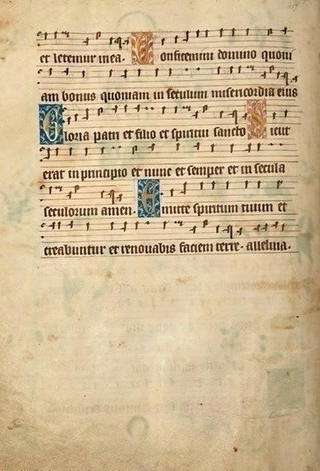 et letemur in ea. Confitemini domino quoni
am bonus quoniam in seculum misericordia eius
Gloria patri et filio et spiritui sancto Sicut
erat in principio et nunc et semper et in secula
seculorum amen. Emitte spiritum tuum et
creabuntur et renouabis faciem terre. alleluia.